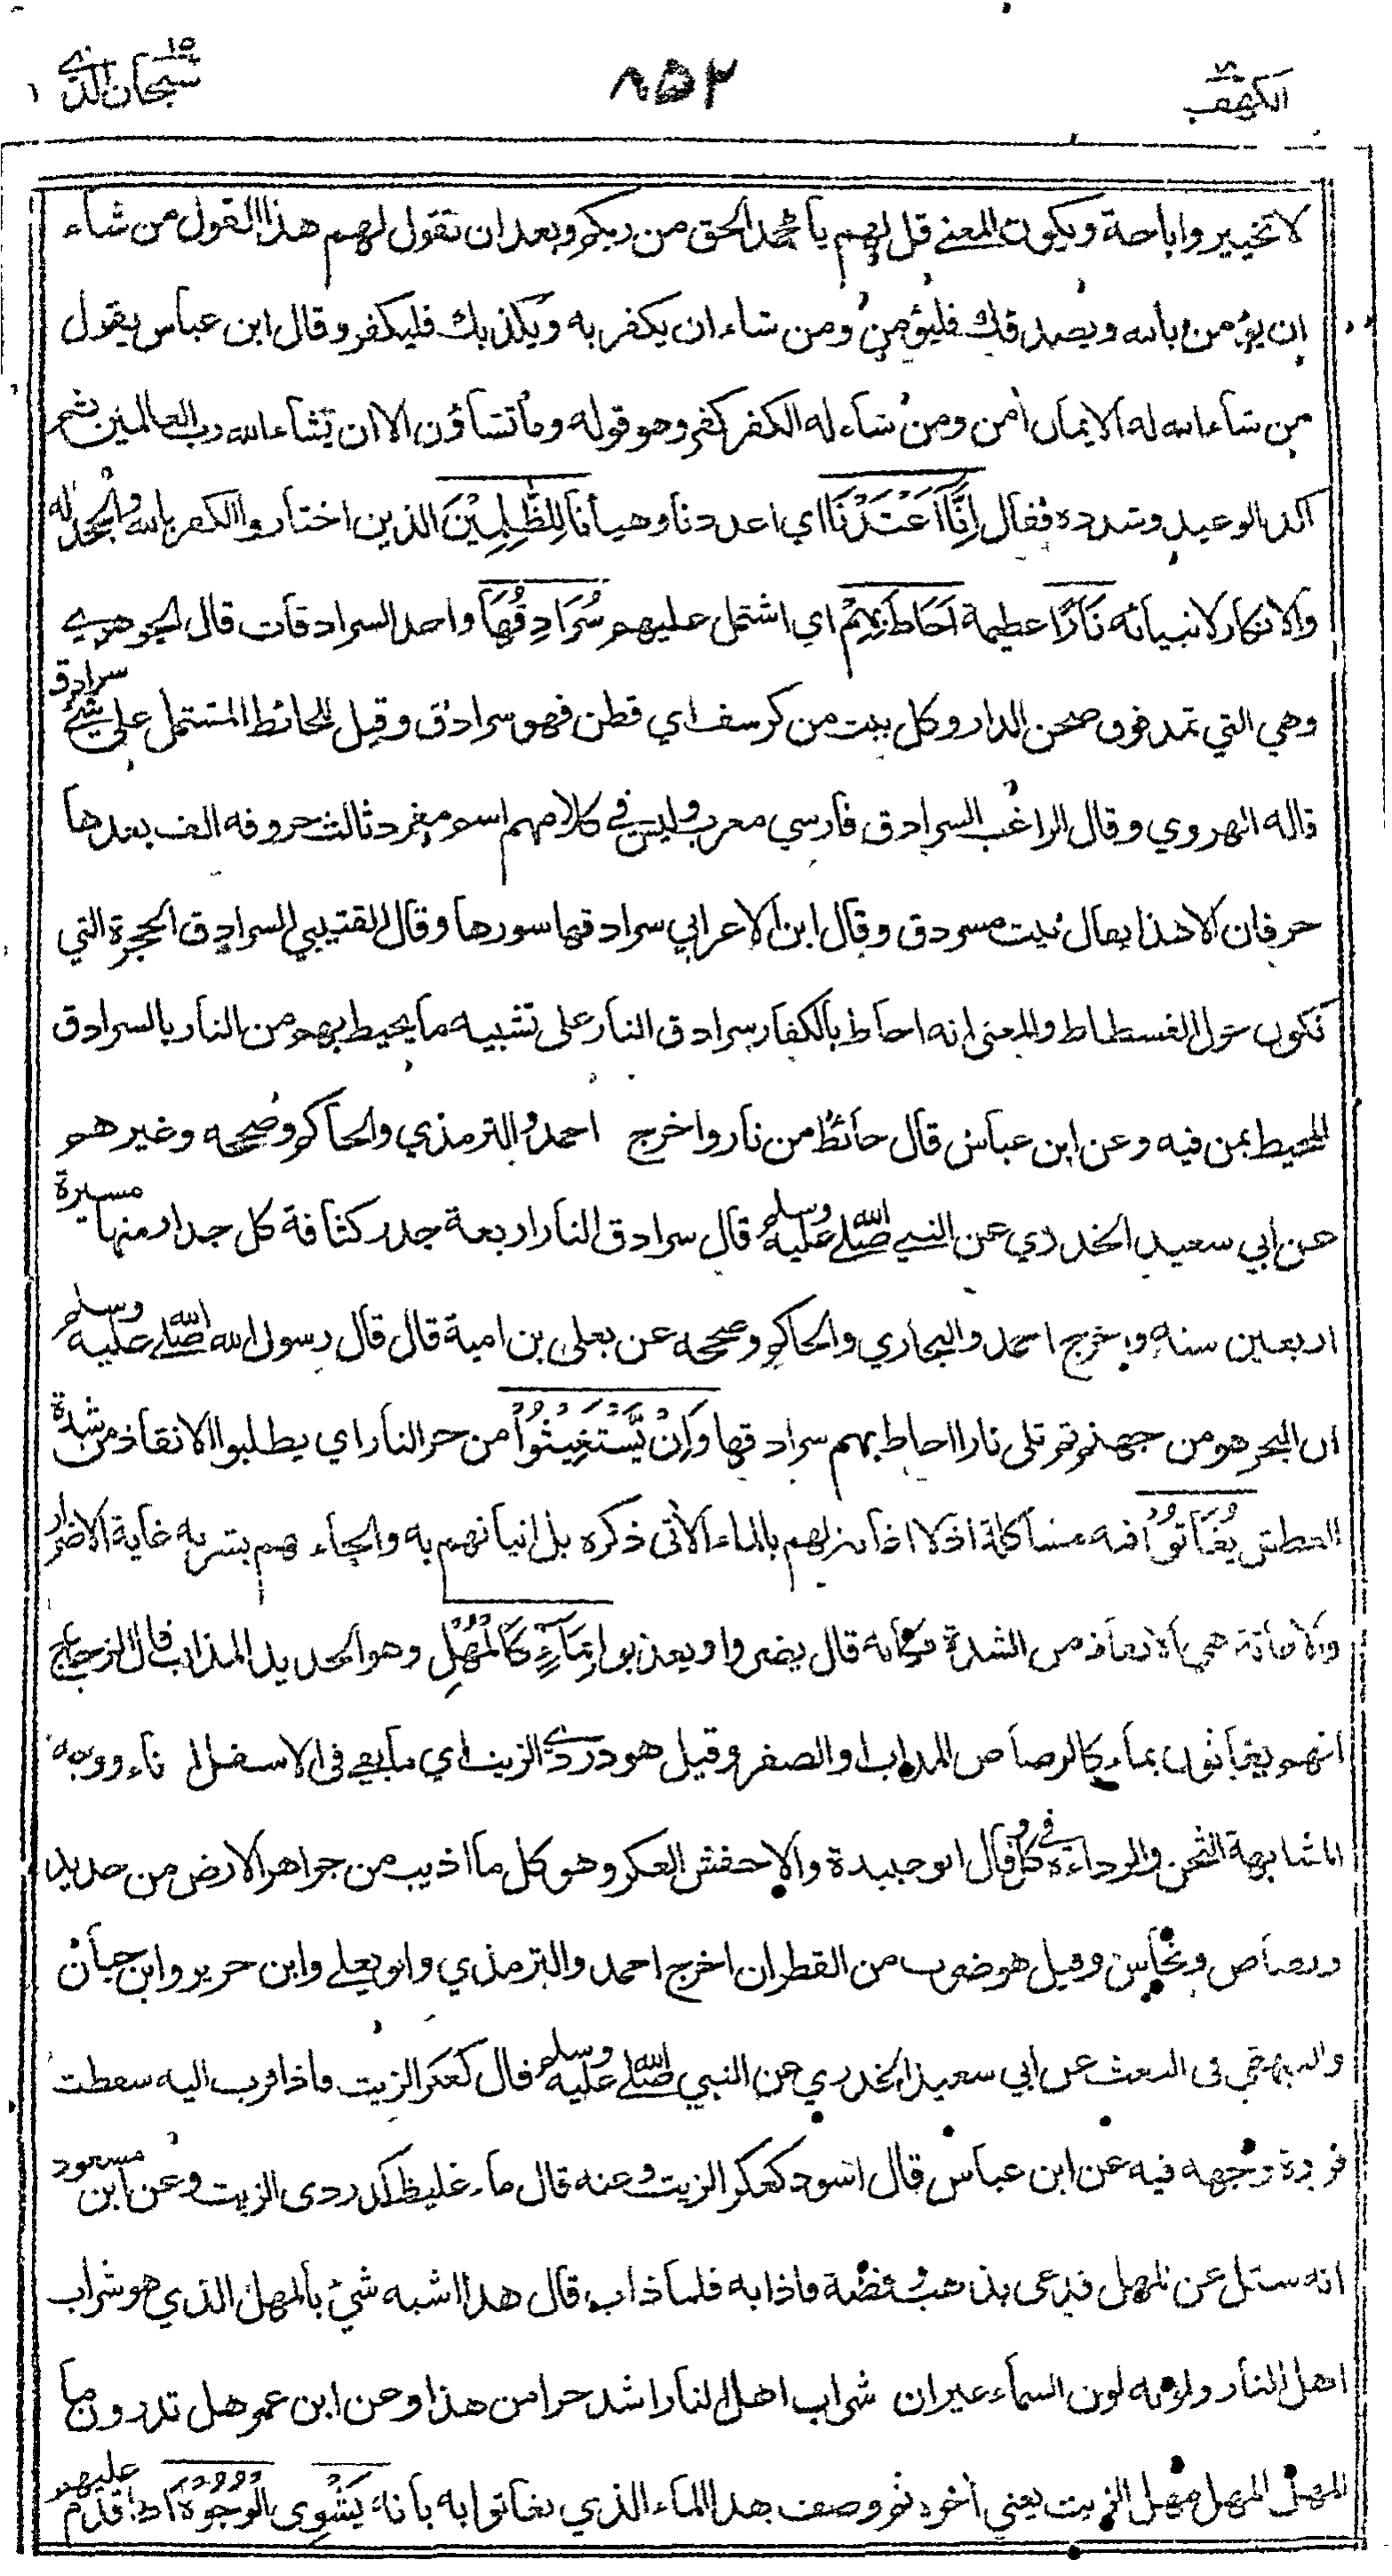 الكهف ١٨
٨٥٢
سبحان الذي ١٥
لا تخيير واباحة ويكون المعنى قل لهم يا محمد الحق من ربكم وبعد ان تقول لهم هذا القول من شاء
ان يؤمن بالله ويصدقك فليؤمن ومن شاء ان يكفر به ويكذبك فليكفر وقال ابن عباس يقول
من شاء الله له الايمان أمن ومن شاء له الكفر كفر وهو قوله وما تشاؤن الا ان يشاء الله رب العالمين ثم
اكد الوعيد وشدده فقال اِنَّا اَعْتَدْنَا اي اعددنا وهيأنا لِلظّٰلِمِيْنَ الذين اختاروا الكفر بالله والجحد له
والانكار لانبيائه نَارًا عظيمة اَحَاطَ بِهِمْ اي اشتمل عليهم سُرَادِقُهَا واحد السرادقات قال الجوهري
وهي التي تمد فوق صحن الدار وكل بيت من كرسف اي قطن فهو سرادق وقيل الحائط المشتمل على شيء سرادق
قاله الهروي وقال الراغب السرادق فارسي معرب وليس في كلامهم اسم مفرد ثالث حروفه الف بعدها
حرفان الا هذا يقال بيت مسردق وقال ابن الاعرابي سرادقها سورها وقال القتيبي السرادق الحجرة التي
تكون حول الفسطاط والمعنى انه احاط بالكفار سرادق النار على تشبيه ما يحيط بهم من النار بالسرادق
المحيط بمن فيه وعن ابن عباس قال حائط من نار واخرج احمد والترمذي والحاكم وصححه وغيرهم
عن ابي سعيد الخدري عن النبي صلى الله عليه وسلم قال سرادق النار اربعة جدر كثافة كل جدار منها مسيرة
اربعين سنه واخرج احمد والبخاري والحاكم وصححه عن يعلى بن امية قال قال رسول الله صلى الله عليه وسلم
ان البحر هو من جهنم ثم تلى نارا احاط بهم سرادقها وَاِنْ يَّسْتَغِيْثُوْا من حر النار اي يطلبوا الانقاذ من شدة
العطش يُغَاثُوْا فيه مشاكلة اذ لا اغاثة لهم بالماء الآتي ذكره بل اتيانهم به والجاءهم بشربه غاية الاضرار
والاغاثة هي الانقاذ من الشدة فكأنه قال يضروا ويعذبوا بِمَآءٍ كَالْمُهْلِ وهو الحديد المذاب قال الزجاج
انهم يغاثون بماء كالرصاص المذاب او الصفر وقيل هو دردي الزيت اي ما بقي في الاسفل الاناء ووجه
المشابهة الثخن والرداءة في كل قال ابو عبيدة والاخفش العكر وهو كل ما اذيب من جواهر الارض من حديد
ورصاص ونحاس وقيل هو ضرب من القطران اخرج احمد والترمذي وابو يعلى وابن جرير وابن حبان
والبيهقي في البعث عن ابي سعيد الخدري عن النبي صلى الله عليه وسلم قال كعكر الزيت فاذا قرب اليه سقطت
فروة وجهه فيه عن ابن عباس قال اسود كعكر الزيت وعنه قال ماء غليظ كدردى الزيت وعن ابن مسعود
انه سئل عن المهل فدعى بذهب وفضة فاذابه فلما ذاب قال هذا اشبه شيء بالمهل الذي هو شراب
اهل النار ولونه لون السماء غير ان شراب اهل النار اشد حرا من هذا وعن ابن عمر هل تدرون ما
المهل المهل مهل الزيت يعني آخره ثم وصف هذا الماء الذي يغاثوا به بانه يَشْوِى الْوُجُوْهَ اذا قدم عليهم